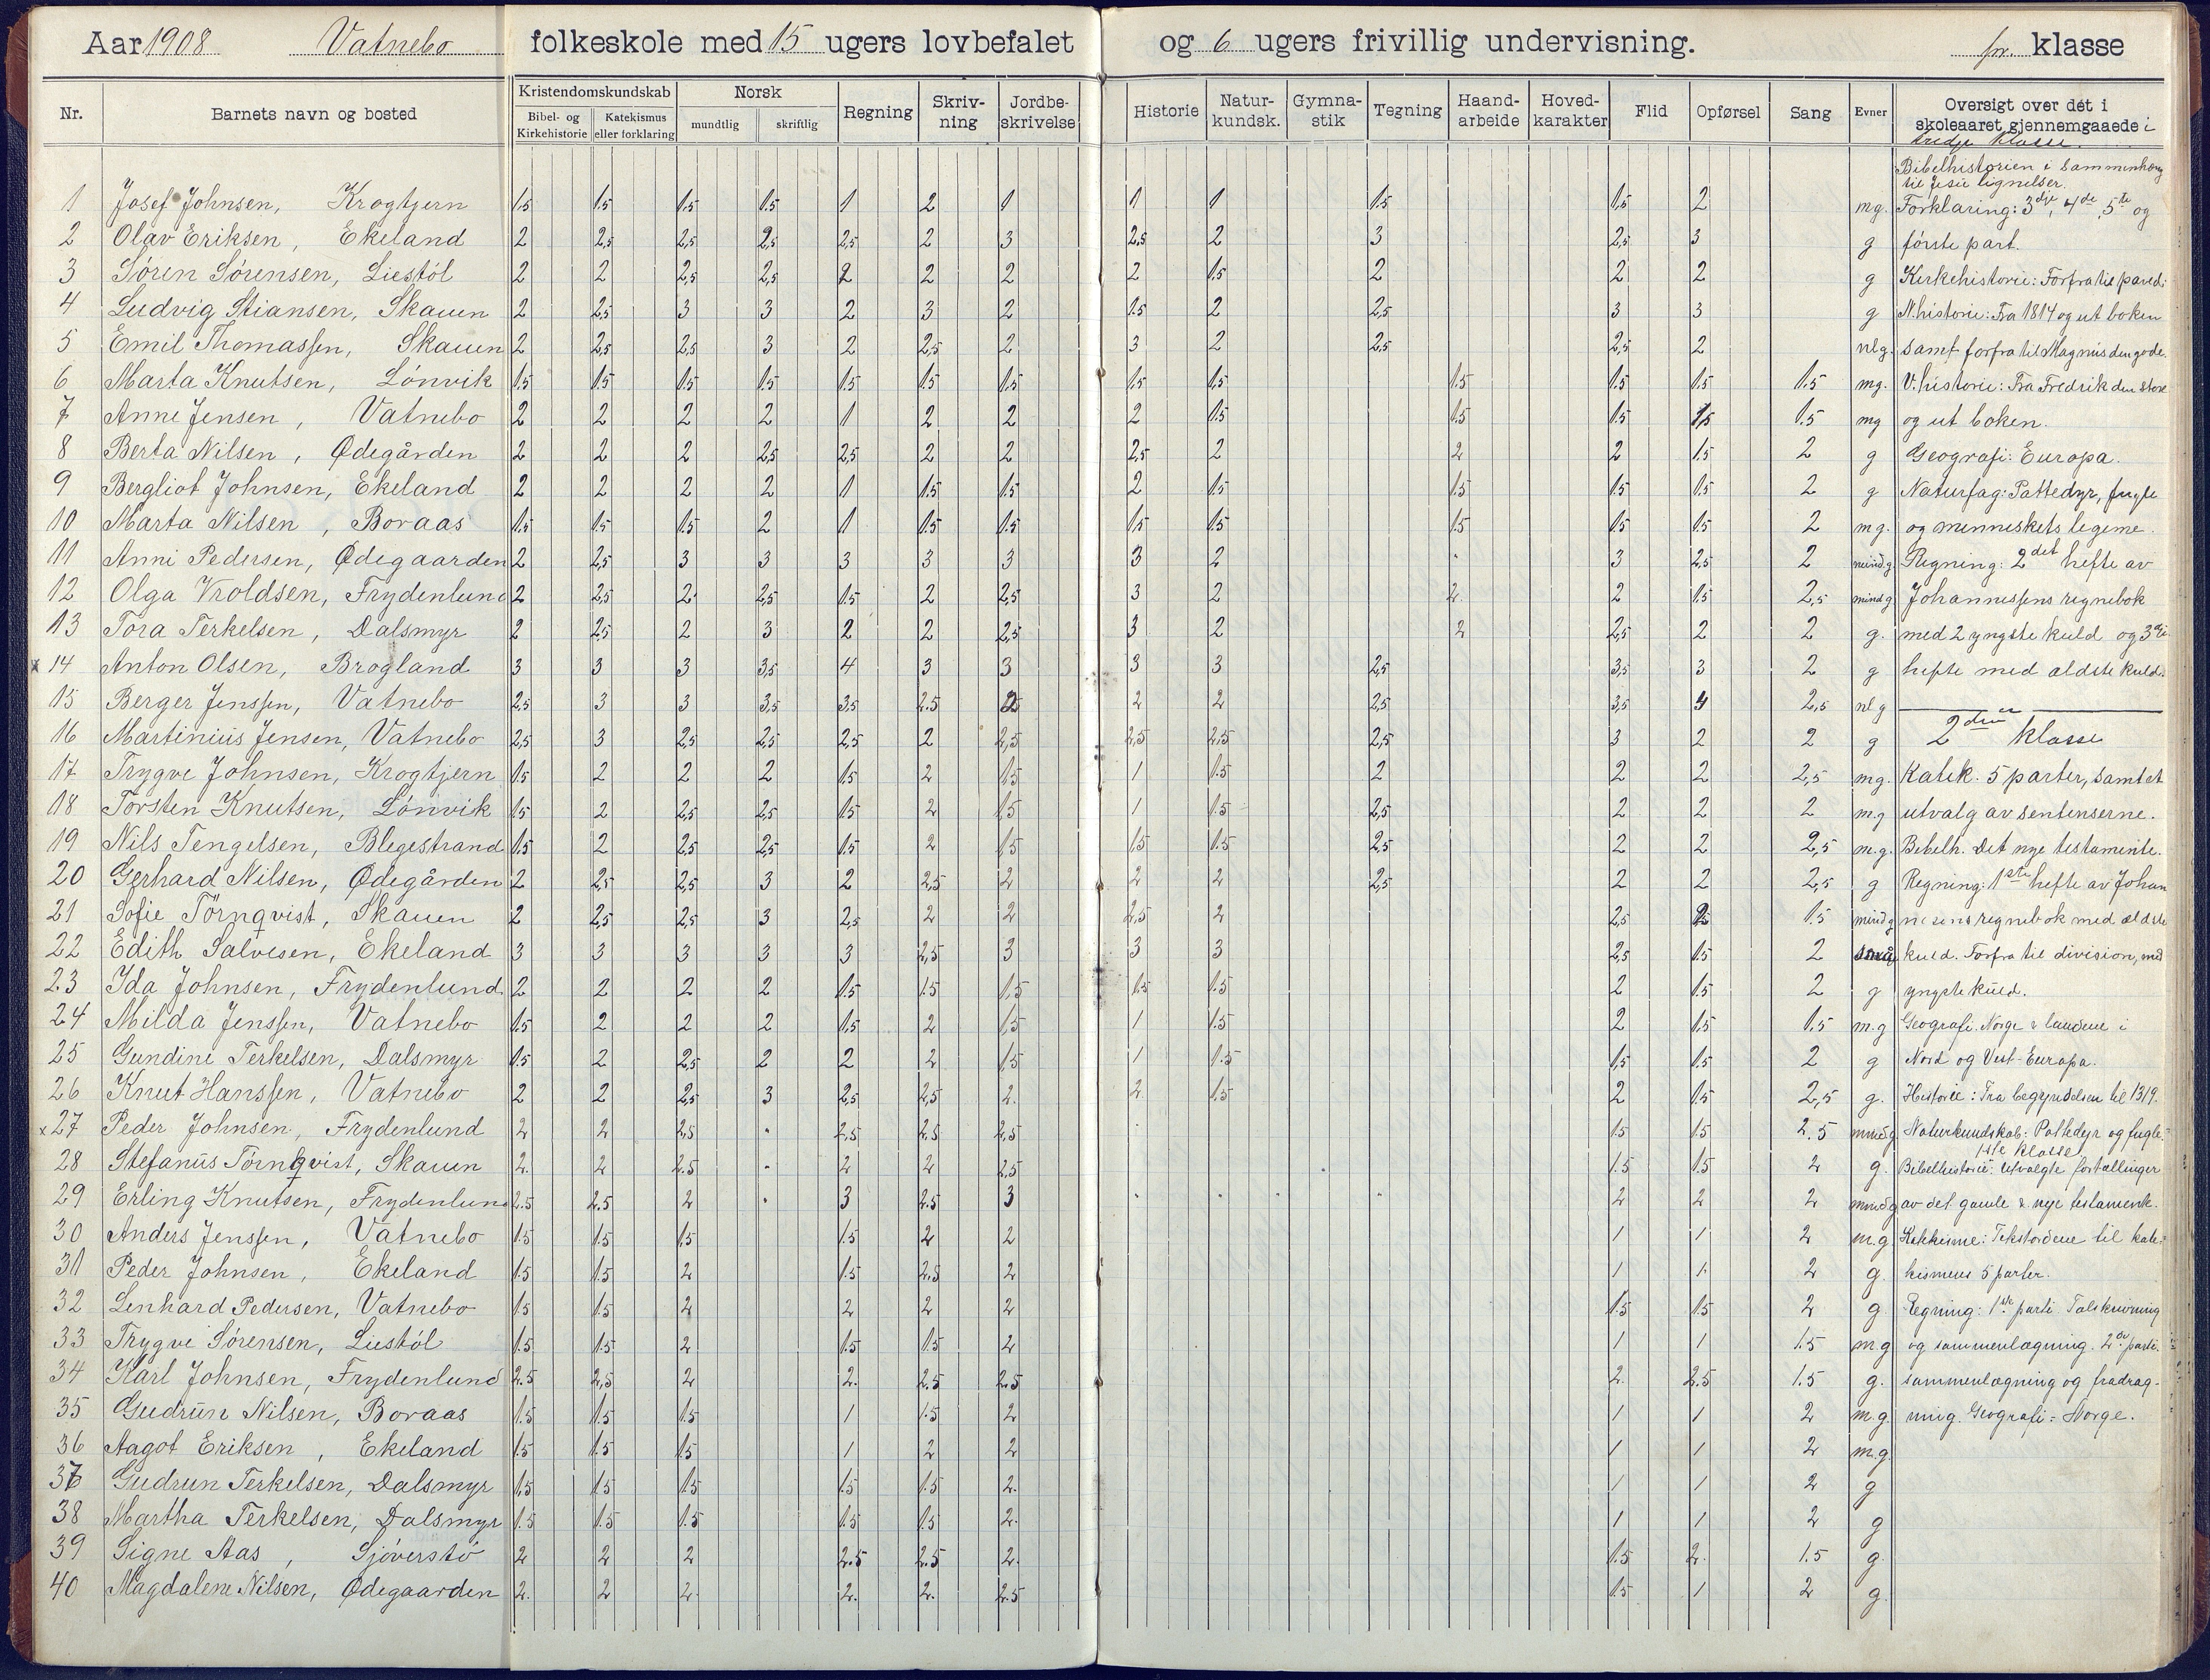 Aar 1908 Vatnebo folkeskole med 15 ugers lovbefalet og 6 ugers frivillig undervisning. klasse
Nr. Barnets navn og bosted Kristendomskundskab Bibel- og Kirkehistorie Katekismus eller forklaring Norsk mundtlig skriftlig Regning Skriv-ning Jordbe-skrivelse Historie Natur-kundsk. Gymna-stik Tegning Haand-arbeide Hoved-karakter Flid Opførsel Sang Evner Oversigt over det i skoleaaret gjennemgaaede i
tredje klasse.
Bibelhistorien i sammenhæng
til Jesu lignelser.
1 Josef Johnsen, Krogtjern 1.5 1.5 1.5 1.5 1 2 1 1 1 1.5 1.5 2 mg. Forklaring: 3dje, 4de, 5te og
2 Olav Eriksen, Ekeland 2 2,5 2,5 2,5 2,5 2 3 2,5 2 3 2,5 3 g første part.
3 Sören Sörensen, Liestöl 2 2 2,5 2,5 2 2 2 2 1.5 2 2 2 g Kirkehistorie: Forfra til
4 Ludvig Stiansen, Skauen 2 2,5 3 3 2 3 2 1.5 2 2,5 3 3 g N.historie: Fra 1814 og ut boken
5 Emil Thomassen, Skauen 2 2,5 2,5 3 2 2,5 2 3 2 2,5 2,5 2 nlg. samt forfra til Magnus den gode.
6 Marta Knutsen, Lönvik 1.5 1.5 1.5 1.5 1.5 1.5 1.5 1.5 1.5 1.5 1.5 1.5 1.5 mg. V.historie: Fra Fredrik den store
7 Anne Jensen, Vatnebo 2 2 2 2 1 2 2 2 1.5 1.5 1.5 1.5 1.5 mg og ut boken.
8 Berta Nilsen, Ødegården 2 2 2 2,5 2,5 2 2 2,5 2 2 2 1.5 2 g Geografi: Europa.
9 Bergliot Johnsen, Ekeland 2 2 2 2 1 1.5 1.5 2 1.5 1.5 1.5 1.5 2 g Naturfag: Pattedyr, fugle
10 Marta Nilsen, Boraas 1.5 1.5 1.5 2 1 1.5 1.5 1.5 1.5 1.5 1.5 1.5 2 mg. og menneskets legeme.
11 Anni Pedersen, Ødegaarden 2 2,5 3 3 3 3 3 3 2 3 2,5 2 mindg Regning: 2det hefte av
12 Olga Vroldsen, Frydenlund 2 2,5 2 2,5 1.5 2 2,5 3 2 2. 2 1.5 2,5 mindg Johannessens regnebok
13 Tora Terkelsen, Dalsmyr 2 2,5 2 3 2 2 2,5 3 2 2 2,5 2 2 g. med 2 yngste kuld og 3die
x 14 Anton Olsen, Brogland 3 3 3 3,5 4 3 3 3 3 2,5 3,5 3 2 g hefte med ældste kuld.
15 Berger Jenssen, Vatnebo 2,5 3 3 3,5 3,5 2.5 2 2 2 2,5 3,5 4 2,5 nlg
16 Martinius Jensen, Vatnebo 2,5 3 2,5 2,5 2,5 2 2,5 2,5 2,5 2,5 3 2 2 g 2den klasse
17 Trygve Johnsen, Krogtjern 1.5 2 2 2 1.5 2 1.5 1 1.5 2 2 2 2,5 mg. Katek. 5 parter, samt et
18 Torsten Knutsen, Lönvik 1.5 2 2,5 2,5 1.5 2 1.5 1 1.5 2,5 2 2 2 m.g utvalg av sentenserne.
19 Nils Tengelsen, Blegestrand 1.5 2 2,5 2,5 1.5 2 1.5 1.5 1.5 2,5 2 2 2,5 m.g. Bibelh. Det nye testamente.
20 Gerhard Nilsen, Ødegården 2 2,5 2,5 3 2 2,5 2 2 2 2,5 2 2 2,5 g Regning: 1ste hefte av Johan
21 Sofie Törnqvist, Skauen 2 2,5 2,5 3 2,5 2 2 2,5 2 2,5 2 1.5 mindg nesens regnebok med ældste
22 Edith Salvesen, Ekeland 3 3 3 3 3 2,5 3 3 3 2,5 1.5 2 små kuld. Forfra til division, med
23 Ida Johnsen, Frydenlund 2 2 2 2 1.5 1.5 1,5 1.5 1.5 2 1.5 2 g yngste kuld.
24 Milda Jenssen, Vatnebo 1.5 2 2 2 1.5 2 1.5 1 1.5 2 1.5 1.5 m.g Geografi. Norge & landene i
25 Gundine Terkelsen, Dalsmyr 1.5 2 2,5 2 2 2 1.5 1 1.5 1.5 1.5 2 g Nord og Vest-Europa.
26 Knut Hanssen, Vatnebo 2 2 2,5 3 2,5 2,5 2. 2 1.5 2 1.5 2,5 g. Historie: Fra begyndelsen til 1319.
x 27 Peder Johnsen, Frydenlund 2 2 2,5 2,5 2,5 2,5 1.5 1.5 2.5 mindg Naturkundskab: Pattedyr og fugle.
1ste klasse
28 Stefanus Törnqvist, Skauen 2. 2 2.5 2 2 2.5 1.5 1.5 2 g. Bibelhistorie: Utvalgte fortællinger
29 Erling Knutsen, Frydenlund 2.5 2.5 2 3 2.5 3 2 2 2 mindg av det gamle & nye testamente.
30 Anders Jenssen, Vatnebo 1.5 1.5 1.5 1.5 2 2 1 1 2 m.g Katekisme: Tekstordene til kate-
31 Peder Johnsen, Ekeland 1.5 1.5 2 1.5 2,5 2 1 1. 2 g. kismens 5 parter.
32 Lenhard Pedersen, Vatnebo 1.5 1.5 2 2 2 2 1.5 1.5 2 g. Regning: 1ste parti. Talskrivning
33 Trygve Sörensen, Liestöl 1.5 1.5 2 1.5 1.5 2 1 1 1.5 m.g og sammenlægning. 2det parti.
34 Karl Johnsen, Frydenlund 2.5 2,5 2 2. 2.5 2.5 2. 2.5 1.5 g. sammenlægning og fradrag-
35 Gudrun Nilsen, Boraas 1.5 1.5 1.5 1 1.5 2 1 1 2 m.g. ning. Geografi: Norge.
36 Aagot Eriksen, Ekeland 1.5 1.5 1.5 1 2 2 1 1 2 m.g.
37 Gudrun Terkelsen, Dalsmyr 1.5 1.5 1.5 1.5 1.5 2. 1 1 2 g
38 Martha Terkelsen, Dalsmyr 1.5 1.5 1.5 1.5 1.5 2. 1 1 2 g
39 Signe Aas, Sjöverstö 2 2 2 2.5 2.5 2. 1.5 2. 1.5 g.
40 Magdalene Nilsen, Ødegaarden 2. 2 2. 2. 2. 2.5 1.5 1 2 g.